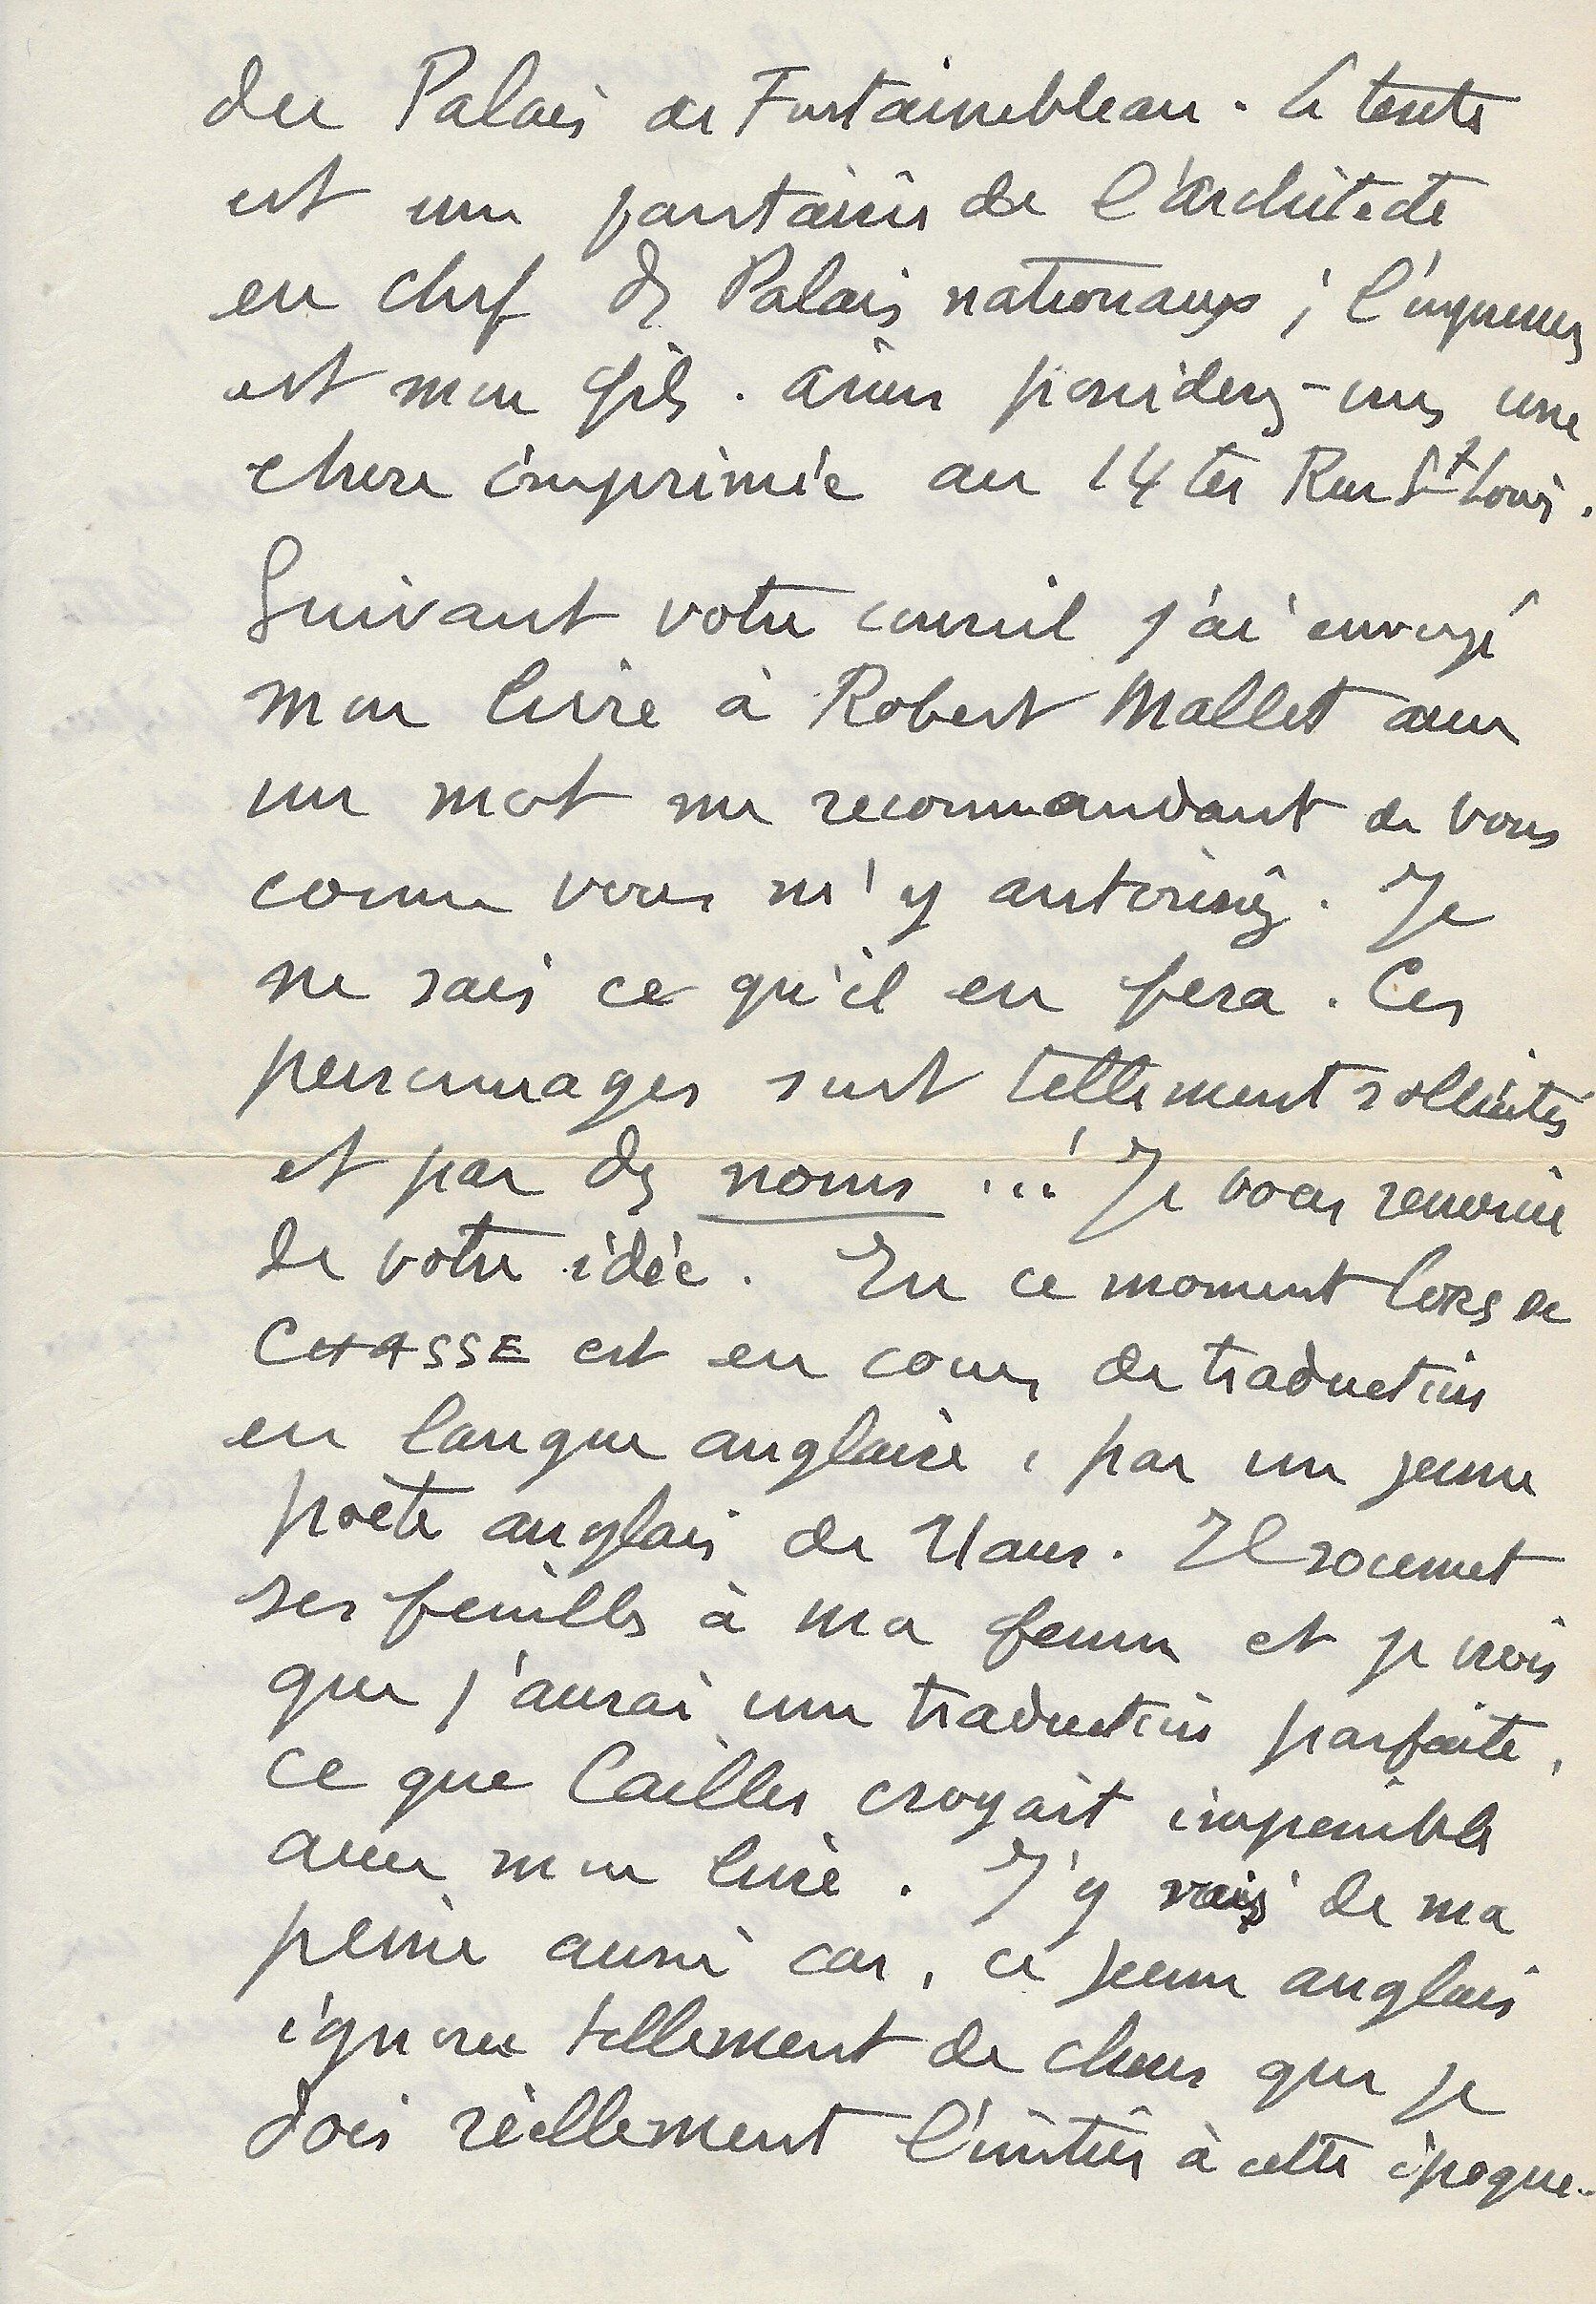 du Palais de Fontainebleau. Le texte
est une fantaisie de l'architecte
en chef des Palais nationaux ;
est mon fils. Ainsi possédez-vous une
chose imprimée au 14 ter Rue St Louis.
Suivant votre conseil j'ai envoyé
mon livre à Robert Mallet avec
un mot me recommandant de vous
comme vous m'y autorisiez. Je
ne sais ce qu'il en fera. Ces
personnages sont tellement sollicités
et par des noms ...! Je vous remercie
de votre idée. En ce moment Cors de
CHASSE est en cours de traduction
en langue anglaise, par un jeune
poète anglais de Vans. Il soumet
ses feuilles à ma femme et je crois
que j'aurai une traduction parfaite,
ce que Cailler croyait impossible
avec mon livre. J'y vais de ma
peine aussi car, ce jeune anglais
ignore tellement de choses que je
dois réellement l'initier à cette époque.